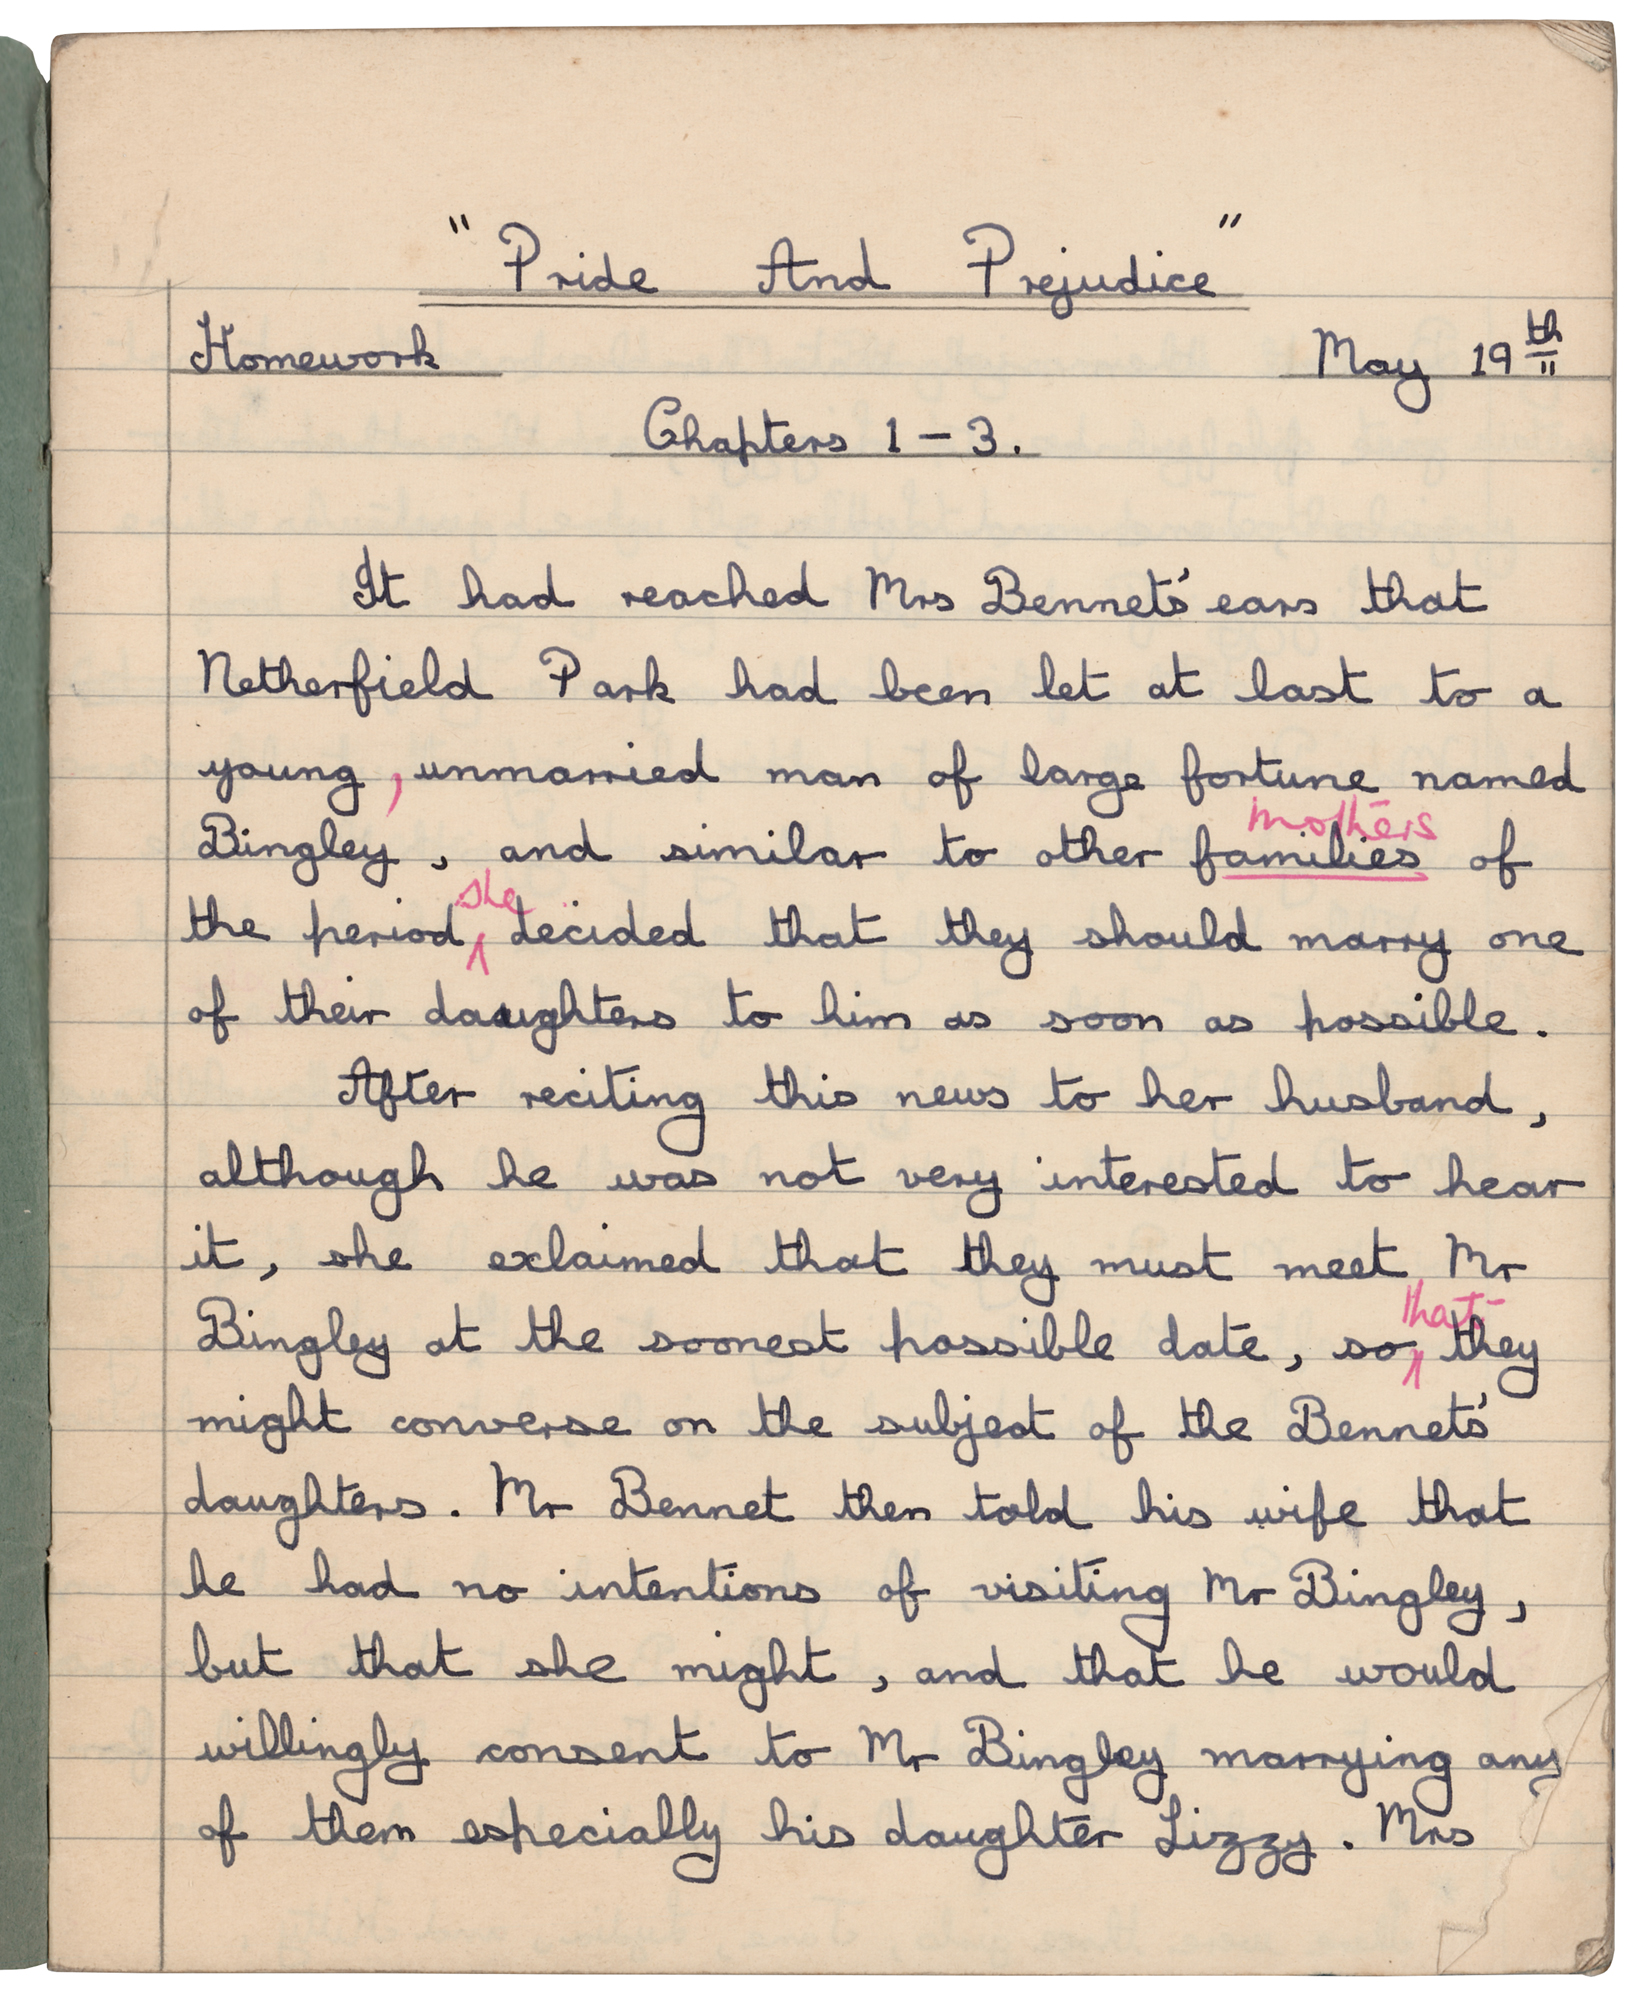 "Pride And Prejudice"
Homework May 19th
Chapters 1 - 3.
It had reached Mrs Bennets' ears that
Netherfield Park had been let at last to a
young, unmarried man of large fortune named
mothers
Bingley, and similar to other families of
she
the period, decided that they should marry one
of their daughters to him as soon as possible.
After reciting this news to her husband,
although he was not very interested to hear
it, she exclaimed that they must meet Mr
that
Bingley at the soonest possible date, so they
might converse on the subject of the Bennets'
daughters. Mr Bennet then told his wife that
he had no intentions of visiting Mr Bingley,
but that she might, and that he would
willingly consent to Mr Bingley marrying any
of them especially his daughter Lizzy. Mrs